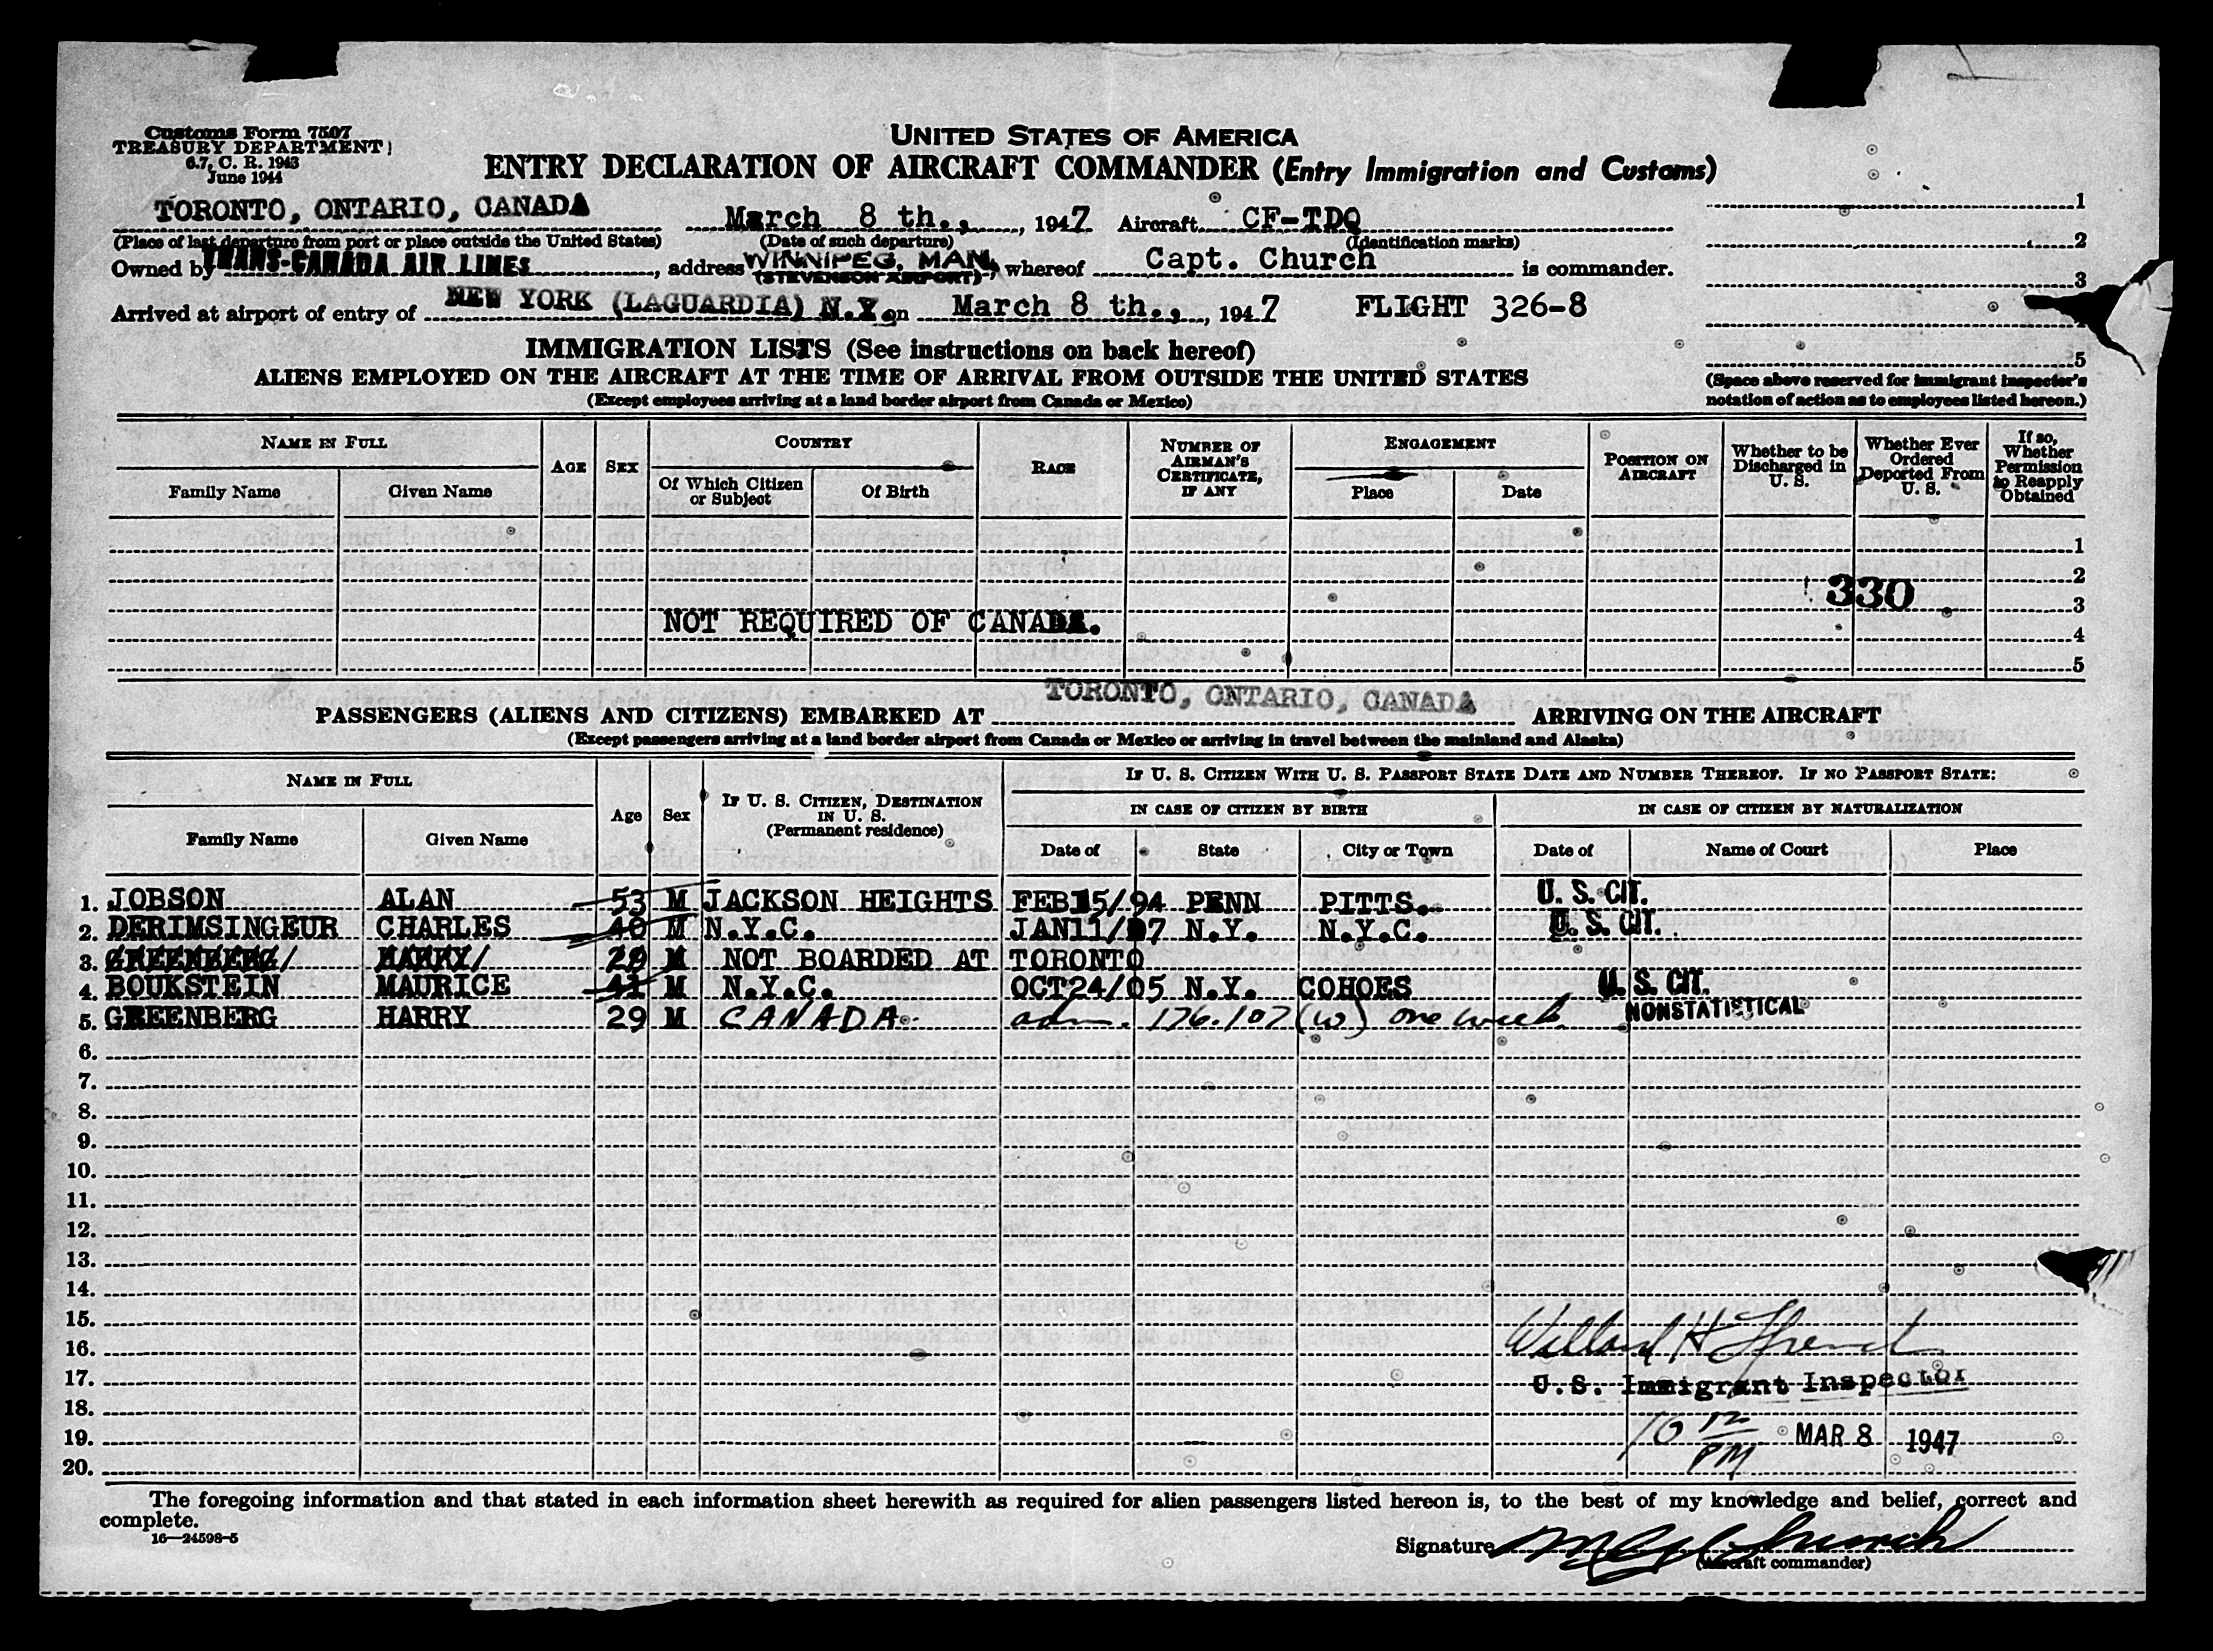 Customs Form 7507
TREASURY DEPARTMENT
6.7, C. R. 1943
June 1944
UNITED STATES OF AMERICA
ENTRY DECLARATION OF AIRCRAFT COMMANDER (Entry Immigration and Customs)
TORONTO, ONTARIO, CANADA March 8 th., 1947 Aircraft CF-TDQ 1
(Place of last departure from port or place outside the United States) (Date of such departure) (Identification marks) 2
Owned by TRANS-CANADA AIR LINES, address WINNIPEG, MAN. (STEVENSON AIRPORT), whereof Capt. Church is commander. 3
Arrived at airport of entry of NEW YORK (LAGUARDIA) N.Y. on March 8 th., 1947 FLIGHT 326-8
IMMIGRATION LISTS (See instructions on back hereof) 5
ALIENS EMPLOYED ON THE AIRCRAFT AT THE TIME OF ARRIVAL FROM OUTSIDE THE UNITED STATES
(Space above reserved for immigrant inspector's
(Except employees arriving at a land border airport from Canada or Mexico)
notation of action as to employees listed hereon.)
NAME IN FULL
Family Name Given Name
AGE SEX
COUNTRY
Of Which Citizen or Subject Of Birth
RACE
NUMBER OF AIRMAN'S CERTIFICATE, IF ANY
ENGAGEMENT
Place Date
POSITION ON AIRCRAFT
Whether to be Discharged in U. S.
Whether Ever Ordered Deported From U. S.
If so, Whether Permission to Reapply Obtained
1
2
330
3
NOT REQUIRED OF CANADA.
4
5
PASSENGERS (ALIENS AND CITIZENS) EMBARKED AT TORONTO, ONTARIO, CANADA ARRIVING ON THE AIRCRAFT
(Except passengers arriving at a land border airport from Canada or Mexico or arriving in travel between the mainland and Alaska)
NAME IN FULL
Family Name Given Name
Age Sex
IF U. S. CITIZEN, DESTINATION IN U. S.
(Permanent residence)
IF U. S. CITIZEN WITH U. S. PASSPORT STATE DATE AND NUMBER THEREOF. IF NO PASSPORT STATE:
IN CASE OF CITIZEN BY BIRTH IN CASE OF CITIZEN BY NATURALIZATION
Date of State City or Town Date of Name of Court Place
1. JOBSON ALAN 53 M JACKSON HEIGHTS FEB15/94 PENN PITTS. U. S. CIT.
2. DERIMSINGEUR CHARLES 40 M N.Y.C. JAN11/07 N.Y. N.Y.C. U. S. CIT.
3. GREENBERG/ HARRY/ 29 M NOT BOARDED AT TORONTO
4. BOUKSTEIN MAURICE 41 M N.Y.C. OCT24/05 N.Y. COHOES U. S. CIT.
5. GREENBERG HARRY 29 M CANADA adm. 176.107 (W) one week NONSTATISTICAL
6.
7.
8.
9.
10.
11.
12.
13.
14.
15.
16. Willard H
17. U.S. Immigrant Inspector
18.
19. 10 PM MAR 8 1947
20.
The foregoing information and that stated in each information sheet herewith as required for alien passengers listed hereon is, to the best of my knowledge and belief, correct and
complete.
16—24598-5
Signature Church
(Aircraft commander)